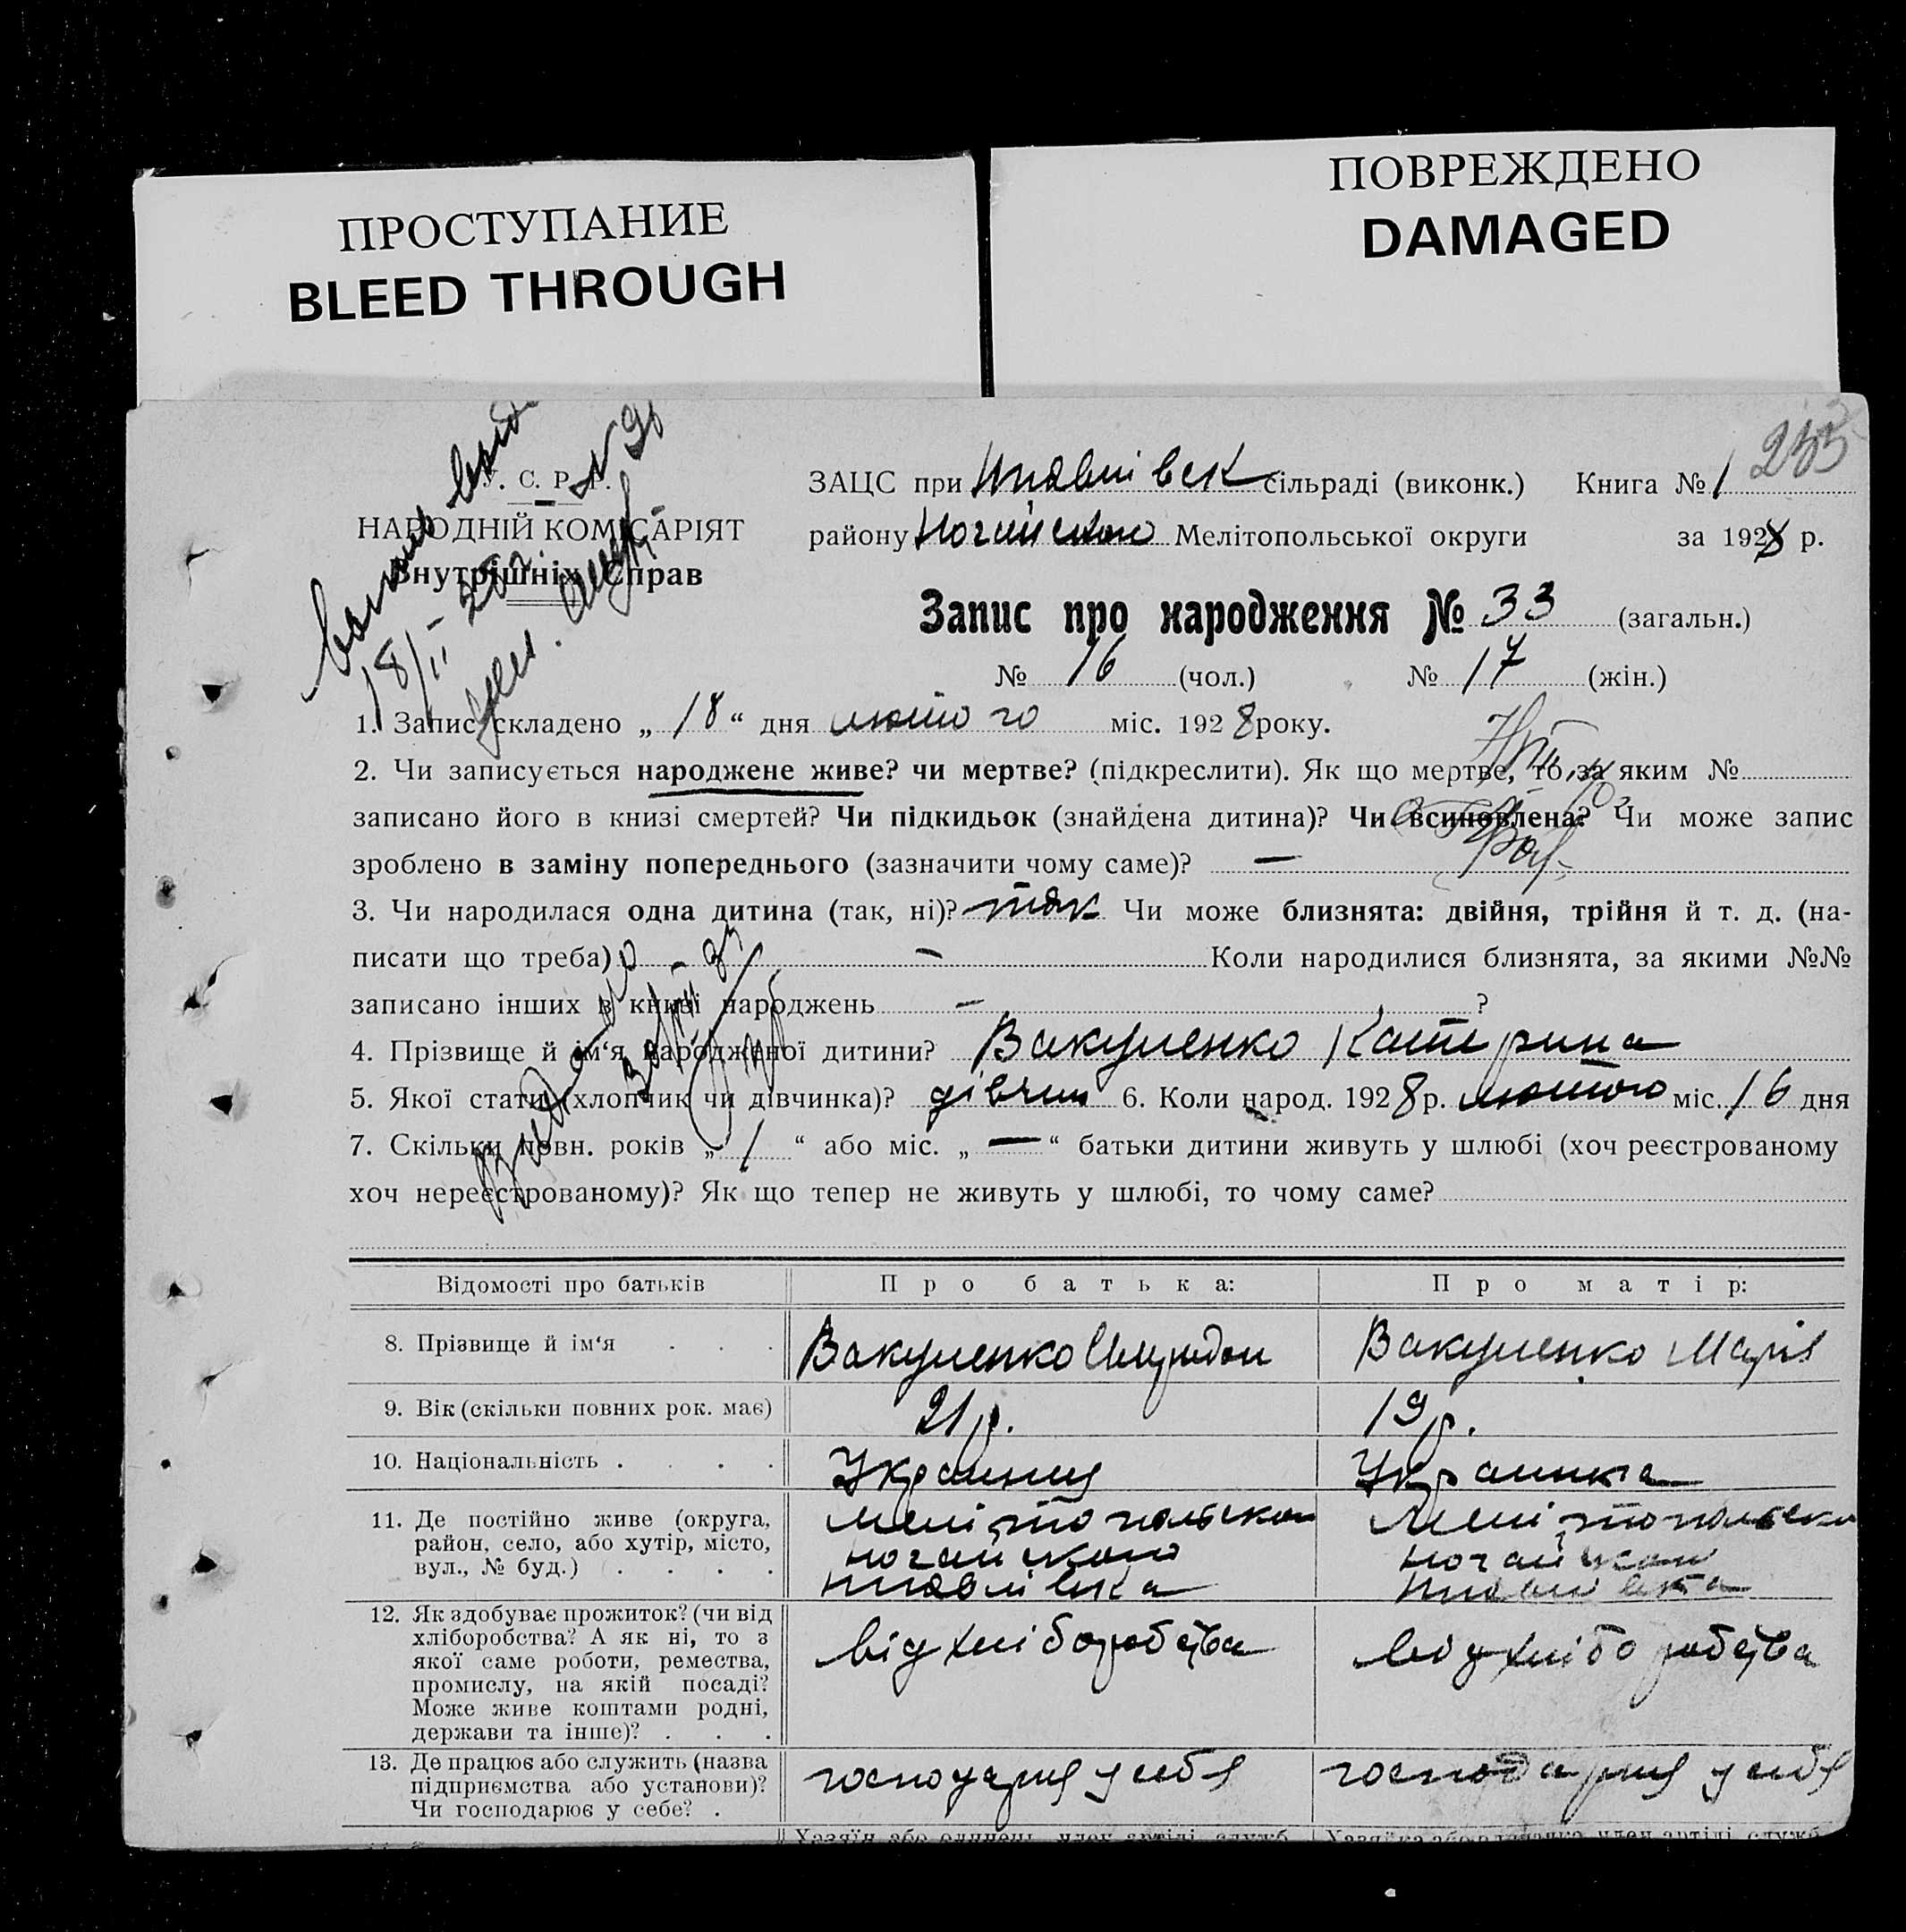 ПРОСТУПАНИЕ
BLEED THROUGH
ПОВРЕЖДЕНО
DAMAGED
253
У. С. Р. Р.
НАРОДНІЙ КОМІСАРІЯТ
Внутрішніх Справ
18/II 28
ЗАЦС при сільраді (виконк.) Книга № 1
району Ногайского Мелітопольської округи за 1928 р.
Запис про народження № 33 (загальн.)
№ 16 (чол.) № 17 (жін.)
1. Запис складено „ 18 “ дня лютого міс. 1928 року.
2. Чи записується народжене живе? чи мертве? (підкреслити). Як що мертве, то за яким №
записано його в книзі смертей? Чи підкидьок (знайдена дитина)? Чи всиновлена? Чи може запис
зроблено в заміну попереднього (зазначити чому саме)? —
3. Чи народилася одна дитина (так, ні)? так Чи може близнята: двійня, трійня й т. д. (на-
писати що треба) — Коли народилися близнята, за якими №№
записано інших в книзі народжень — ?
4. Прізвище й ім‘я народженої дитини? Вакуленко Катерина
5. Якої стати (хлопчик чи дівчинка)? дівчин 6. Коли народ. 1928 р. лютого міс. 16 дня
7. Скільки повн. років „ 1 “ або міс. „ — “ батьки дитини живуть у шлюбі (хоч реєстрованому
хоч нереєстрованому)? Як що тепер не живуть у шлюбі, то чому саме?
Відомості про батьків Про батька: Про матір:
8. Прізвище й ім‘я . . . Вакуленко Вакуленко Марія
9. Вік (скільки повних рок. має) 21 р. 19 р.
10. Національність . . . . Украинец Украинка
11. Де постійно живе (округа,
район, село, або хутір, місто,
вул., № буд.) . . . .
Мелітопольскои
Ногайского
Мелітопольскои
Ногайского
12. Як здобуває прожиток? (чи від
хліборобства? А як ні, то з
якої саме роботи, ремества,
промислу, на якій посаді?
Може живе коштами родні,
держави та інше)? . . .
від хліборобства
від хліборобства
13. Де працює або служить (назва
підприємства або установи)?
Чи господарює у себе? .
господарює у себе
господарює у себе
Хазяїн або одинець, член артілі, служб.
Хазяйка або одиначка, член артілі, служб.